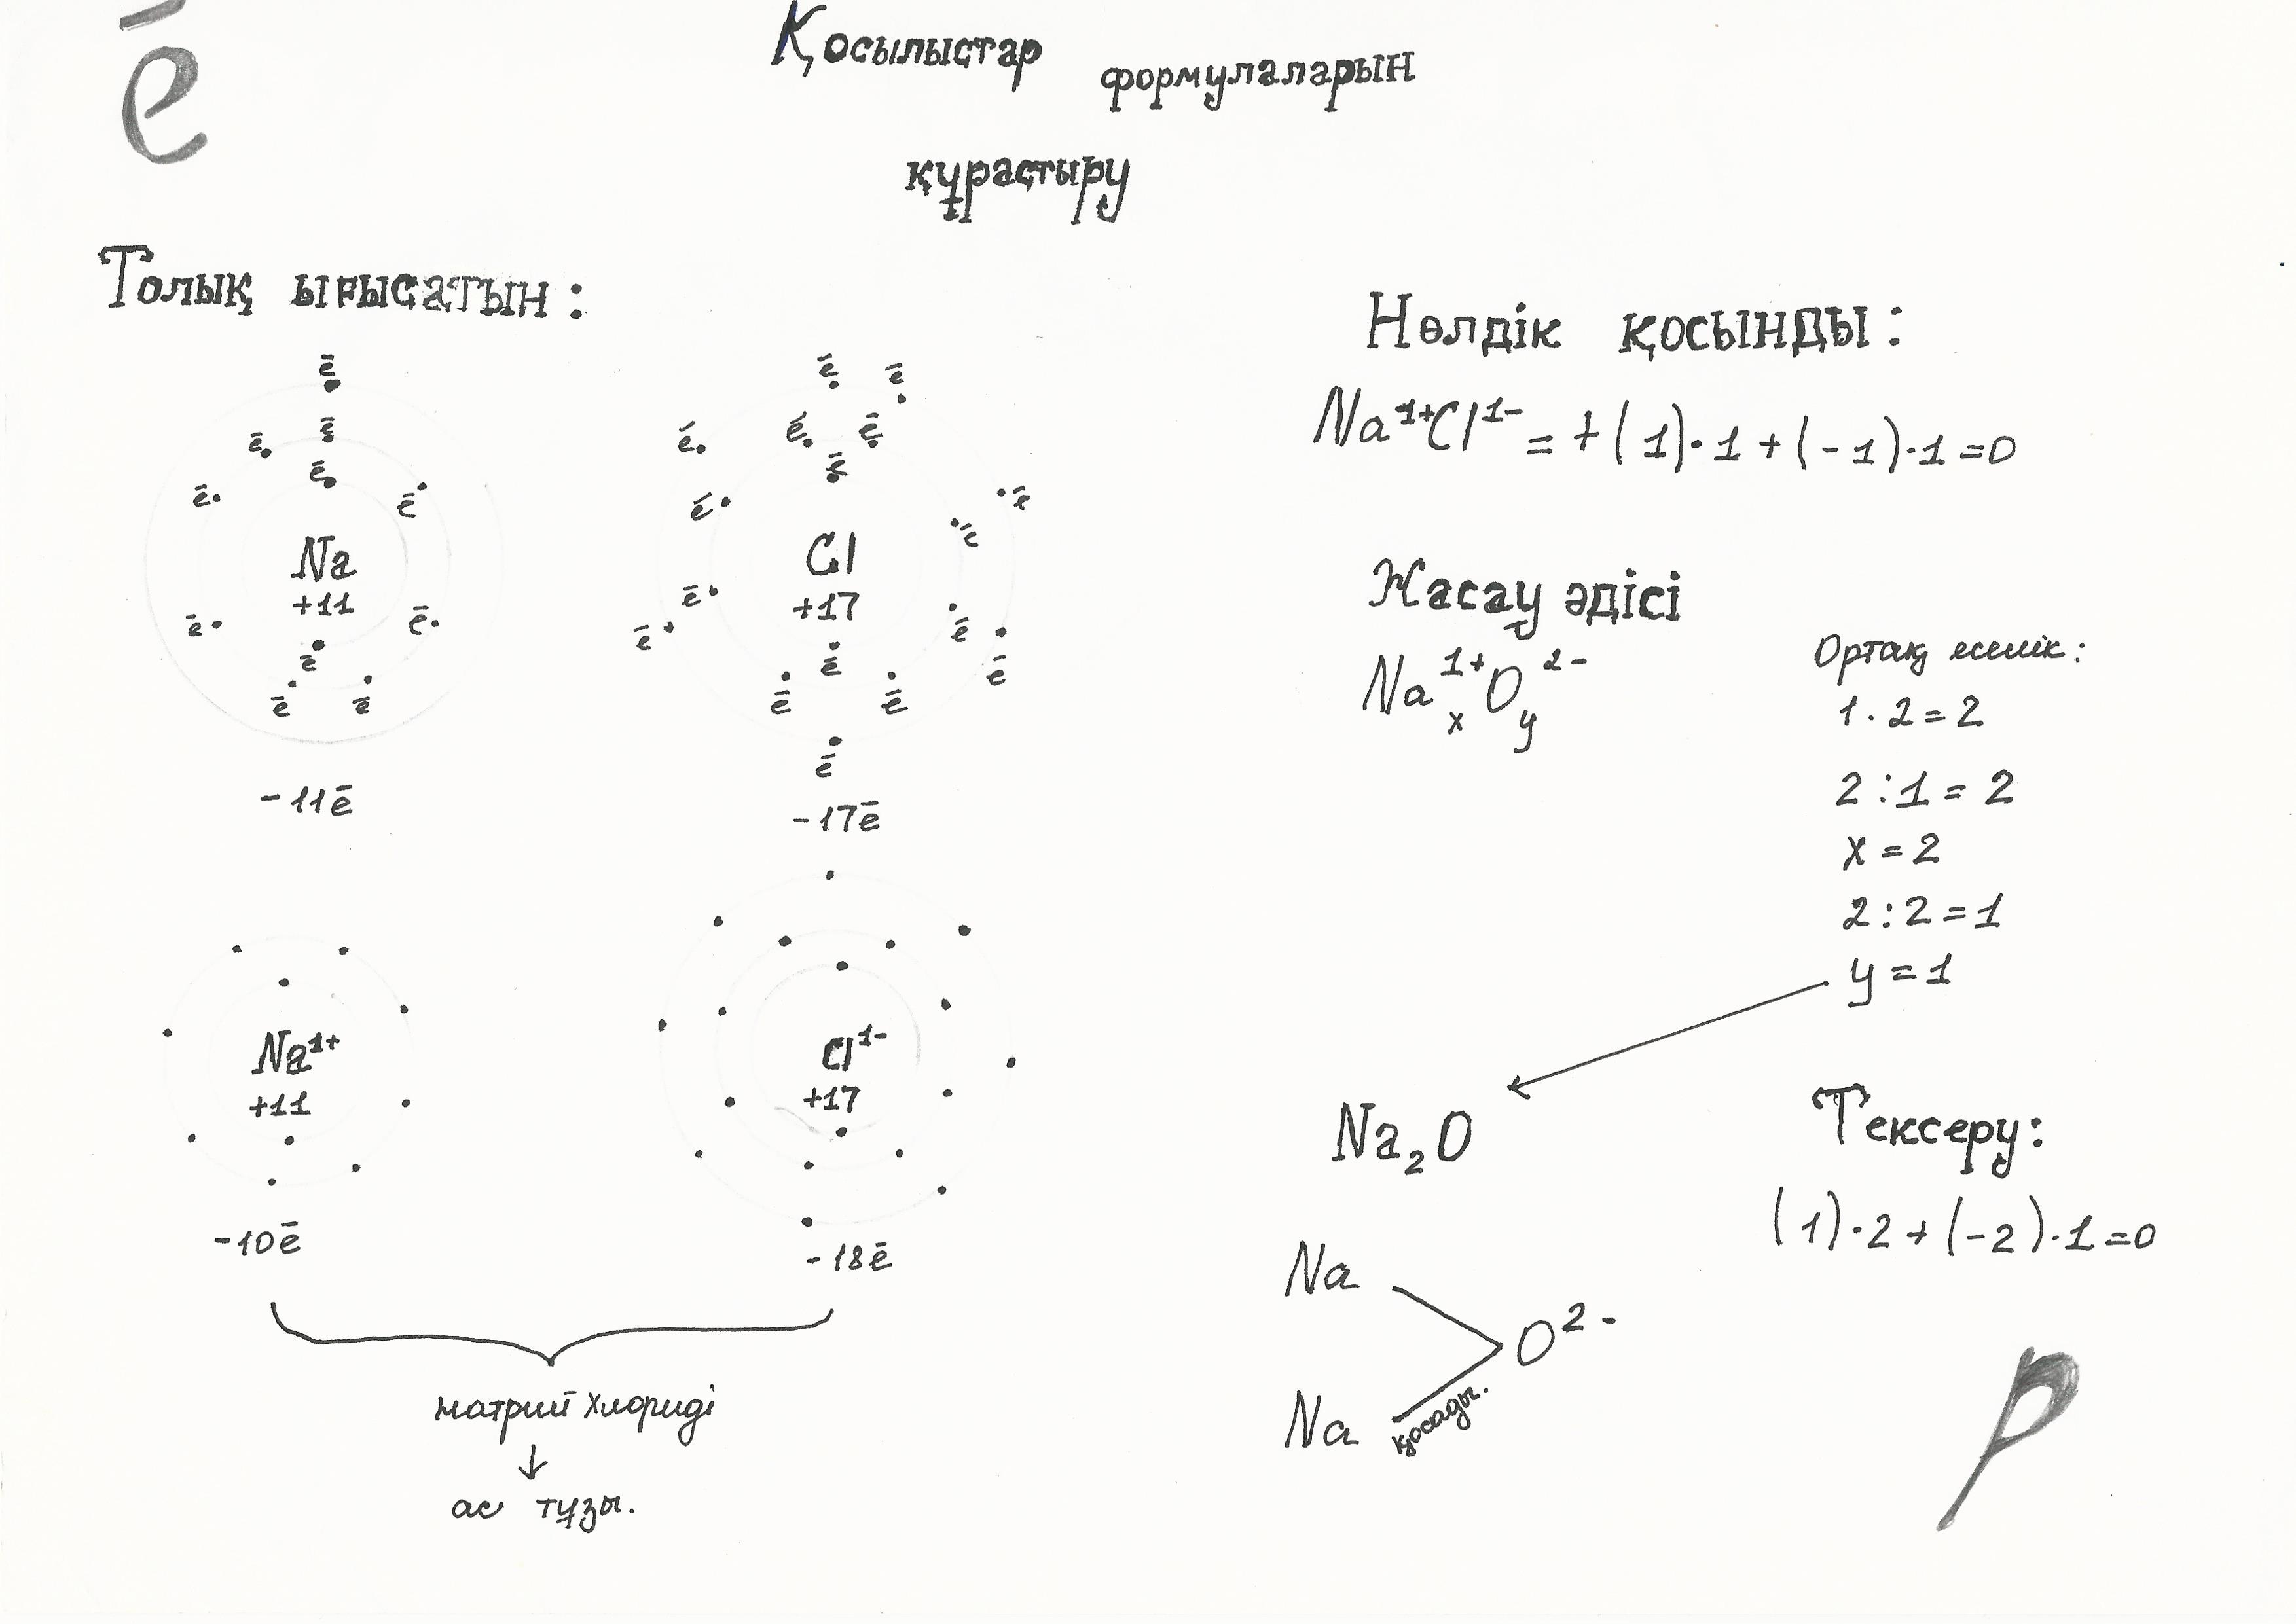 ē
Қосылыстар формулаларын
құрастыру
Толық ығысатын:
ē
ē ē
ē
ē ē
Na
+11
ē ē
ē
ē ē
-11ē
ē ē
ē ē ē
ē
ē ē
ē
Cl
+17
ē ē
ē ē
ē
ē ē
ē
-17ē
Na¹⁺
+11
-10ē
Cl¹⁻
+17
-18ē
натрий хлориді
↓
ас тұзы.
Нөлдік қосынды:
Na¹⁺Cl¹⁻ = +(1)·1+(-1)·1=0
Жасау әдісі
Naₓ¹⁺Oᵧ²⁻
Ортақ еселік:
1·2=2
2:1=2
x=2
2:2=1
y=1
Na₂O
Тексеру:
(1)·2+(-2)·1=0
Na
O²⁻
Na
қосады.
p